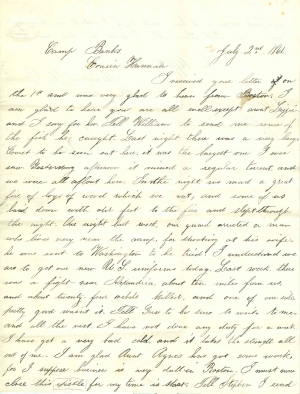 Camp Banks July 2nd 1861
Cousin Hannah
I received your letter on
the 1st and was very glad to hear from Boston. I am
glad to hear you are all well except aunt Lizzie
and I sorry for her. Tell William to send me some of
the fish he caught. Last night there was a very large
Comet to be seen out here, it was the largest one I ever
saw. Yesterday afternoon it rained a regular torrent, and
we were all afloat here. In the night we made a great
fire of logs of wood which we cut, and some of us
laid down with our feet to the fire and slept through
the night. One night last week, our guard arrested a man
who lives very near the camp, for shooting at his wife.
he was sent to Washington to be tried. I understand we
are to get our new U.S. uniforms today. Last week there
was a fight near Alexandria about ten miles from us
and about twenty four rebels killed, and one of our side
pretty good wasn't it. Tell to be sure to write to me
and all the rest. I have not done any duty for a week
I have got a very bad cold and it takes the strength all
out of me. I am glad Aunt Agnes has got some work,
for I suppose business is very dull in Boston. I must now
close this epistle for my time is short. Tell Stephen I send